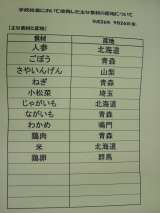 学校給食において使用した主な食材の産地について
平成26年 9月26日(金)
(主な食材と産地)
食材 産地
人参 北海道
ごぼう 青森
さやいんげん 山梨
ねぎ 青森
小松菜 埼玉
じゃがいも 北海道
ながいも 青森
わかめ 鳴門
鶏肉 青森
米 北海道
鶏卵 群馬